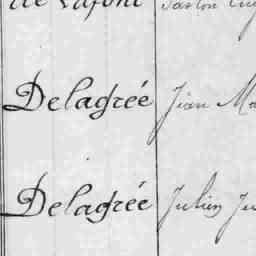 de Lafont Gaston
Delagrée Jean Ma
Delagrée Julien Ju